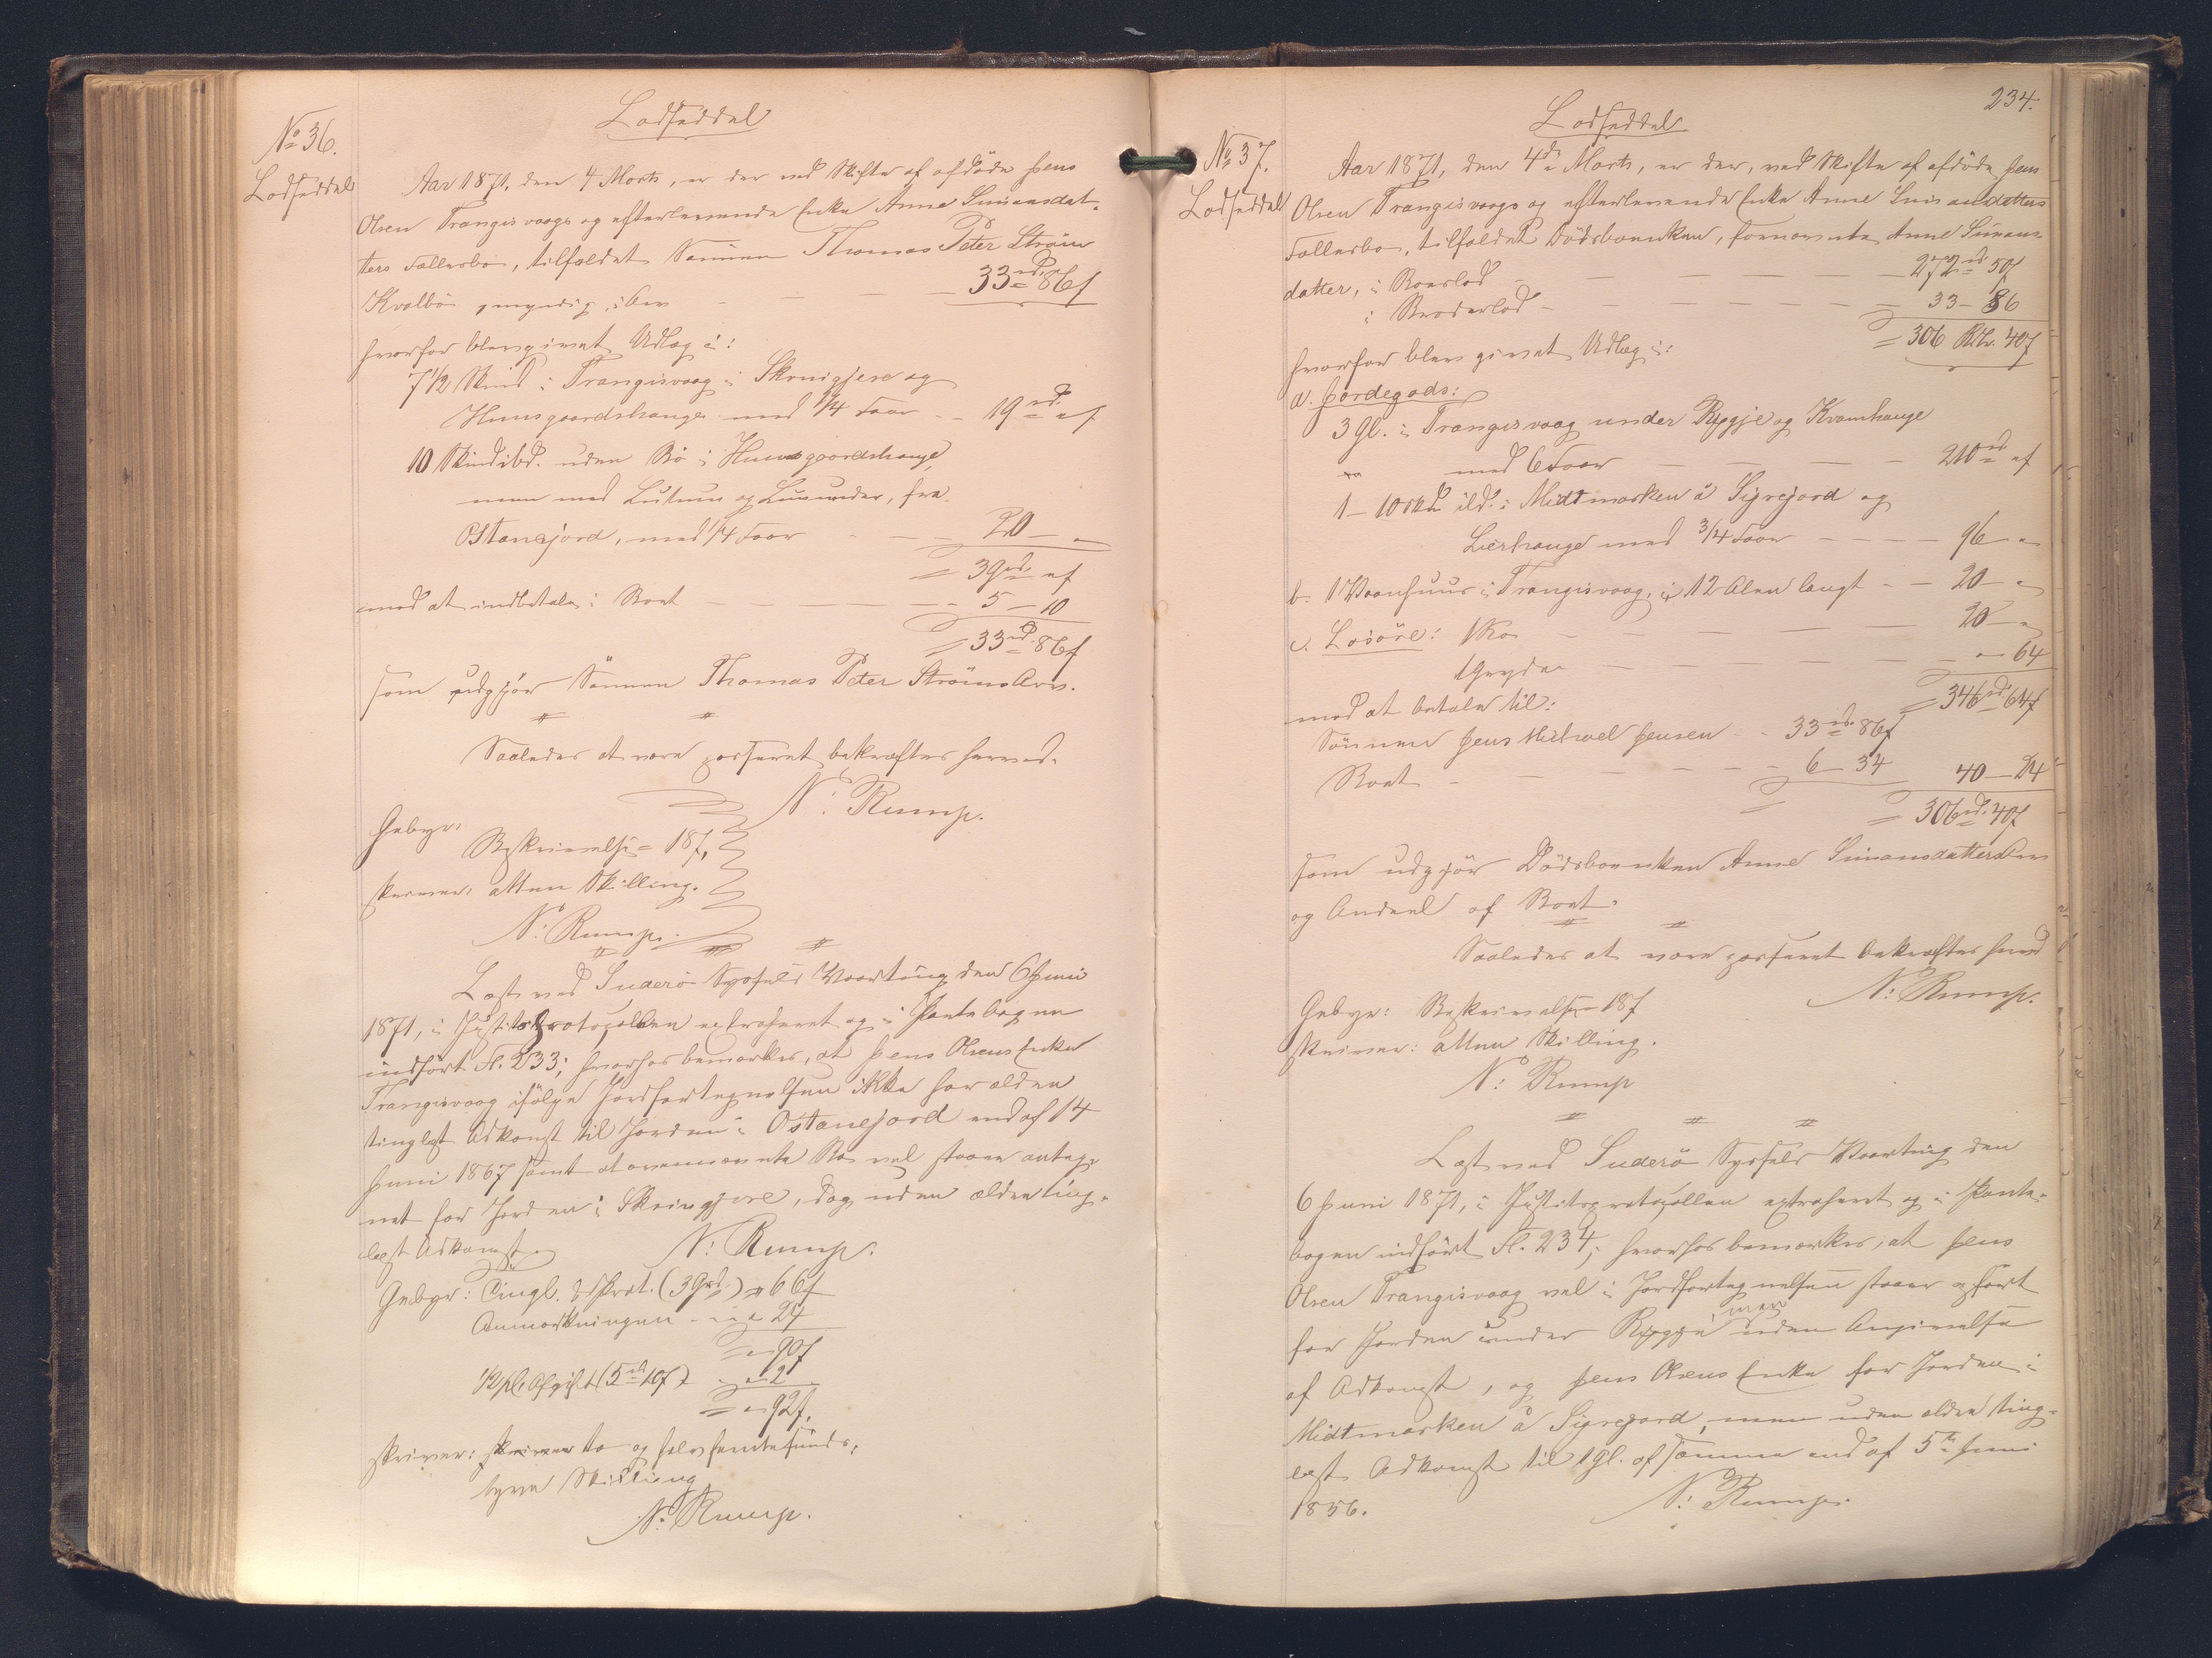 Lodseddel
No 36.
Lodseddel
Aar 1871, den 4 Marts, er der ved Skifte af afdøde Jens
Olsen Trangisvaags og efterlevende Enke Anne Simonsdat-
ters Fællesbo, tilfaldet Sønnen Thomas Peter Strøm
Kvalbö, myndig, i Arv — — — 33rd. 86ſ
hvorfor blev givet Udlæg i:
7 1/2 Skind i Trangisvaag i Skruigjere og
Huusgaardshauge med 1/4 Faar - - 19rd. „ ſ
10 Skind ibd. uden Bö i Huusgaardshauge,
men med Lutum og Lunnunder, fra
Ostanejord, med 1/4 Faar - - - 20 — „
= 39rd. „ ſ
mod at indbetale i Boet — — — — 5 — 10
= 33rd. 86ſ
som udgjör Sönnen Thomas Peter Ströms Arv.
Saaledes at være passeret bekræftes herved.
N: Rump.
Gebyr:
Beskrivelse = 18ſ,
skriver: atten Skilling.
N: Rump.
Læst ved Suderö Syssels Vaarting den 6 Juni
1871, i Justitsprotocollen extraheret og i Pantebogen
indfört Fl. 233; hvorhos bemærkes, at Jens Olsens Enke
Trangisvaag ifölge Jordfortegnelsen ikke har ældre
tinglæst Adkomst til Jorden i Ostanejord end af 14
Juni 1867 samt at ovennævnte Bo vel staaer anteg-
net for Jorden i Skruigjere, dog uden ældre ting-
læst Adkomst.
N: Rump.
Gebyr: Tingl. & Prot. (39rd.) = 66ſ
Anmærkningen - - „ 24
= „ 90ſ
1/2 pCt. Afgift (5rd. 10ſ) - „ 2
= „ 92ſ,
skriver: skriver to og halvfemtesinds-
tyve Skilling
N: Rump.
234.
Lodseddel
No 37.
Lodseddel
Aar 1871, den 4de Marts, er der, ved Skifte af afdöde Jens
Olsen Trangisvaags og efterlevende Enke Anne Simonsdatters
Fællesbo, tilfaldet Dödsboenken, fornævnte Anne Simons-
datter, i Boeslod — — — — 272rd. 50ſ
i Broderlod — — — — — 33 — 86
= 306 Rdr. 40ſ
hvorfor blev givet Udlæg i:
a. Jordegods:
3 Gl. i Trangisvaag under Ryggje og Kvamhauge
med 6 Faar — — — — 210rd. „ ſ
1 — 10 Skd. ibd. i Midtmarken á Sigrejord og
Lierhauge med 3/4 Faar — — — — 96 „
b. 1 Vaanhuus i Trangisvaag, 12 Alen langt - - 20 — „
c. Losöre: 1 Ko — — — — — 20 — „
1 Gryde — — — — — „ — 64
= 346rd. 64ſ
mod at betale til:
Sönnen Jens Michael Jensen - - 33rd. 86ſ
Boet - — — — — 6 — 34   40 — 24
= 306rd. 40ſ
som udgjör Dödsboenken Anne Simonsdatters Arv
og Andeel af Boet.
Saaledes at være passeret bekræftes herved
N: Rump.
Gebyr: Beskrivelse = 18ſ
skriver: atten Skilling.
N: Rump
Læst ved Suderö Syssels Vaarting den
6 Juni 1871, i Justitsprotocollen extraheret og i Pante-
bogen indfört Fl. 234; hvorhos bemærkes, at Jens
Olsen Trangisvaag vel i Jordfortegnelsen staaer opfört
for Jorden under Ryggje men uden Angivelse
af Adkomst, og Jens Olsens Enke for Jorden i
Midtmarken á Sigrejord, men uden ældre ting-
læst Adkomst til 1 Gl. af samme end af 5te Juni
1856.
N: Rump.